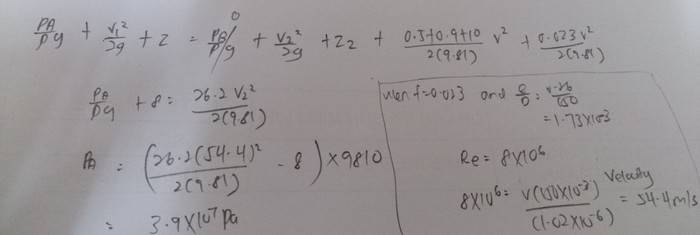 PA/ρg + V₁²/2g + Z = PB/ρg 0 + V₂²/2g + Z₂ + 0.5+0.9+10/2(9.81) V² + 0.023V²/2(9.81)
PA/ρg + 8 = 26.2 V₂²/2(9.81)
PA = (26.2(54.4)²/2(9.81) - 8) × 9810
= 3.9×10⁷ Pa
when f=0.023 and e/D = 0.26/150
= 1.73×10⁻³
Re = 8×10⁶
8×10⁶ = V(150×10⁻³)/(1.02×10⁻⁶) Velocity = 54.4 m/s